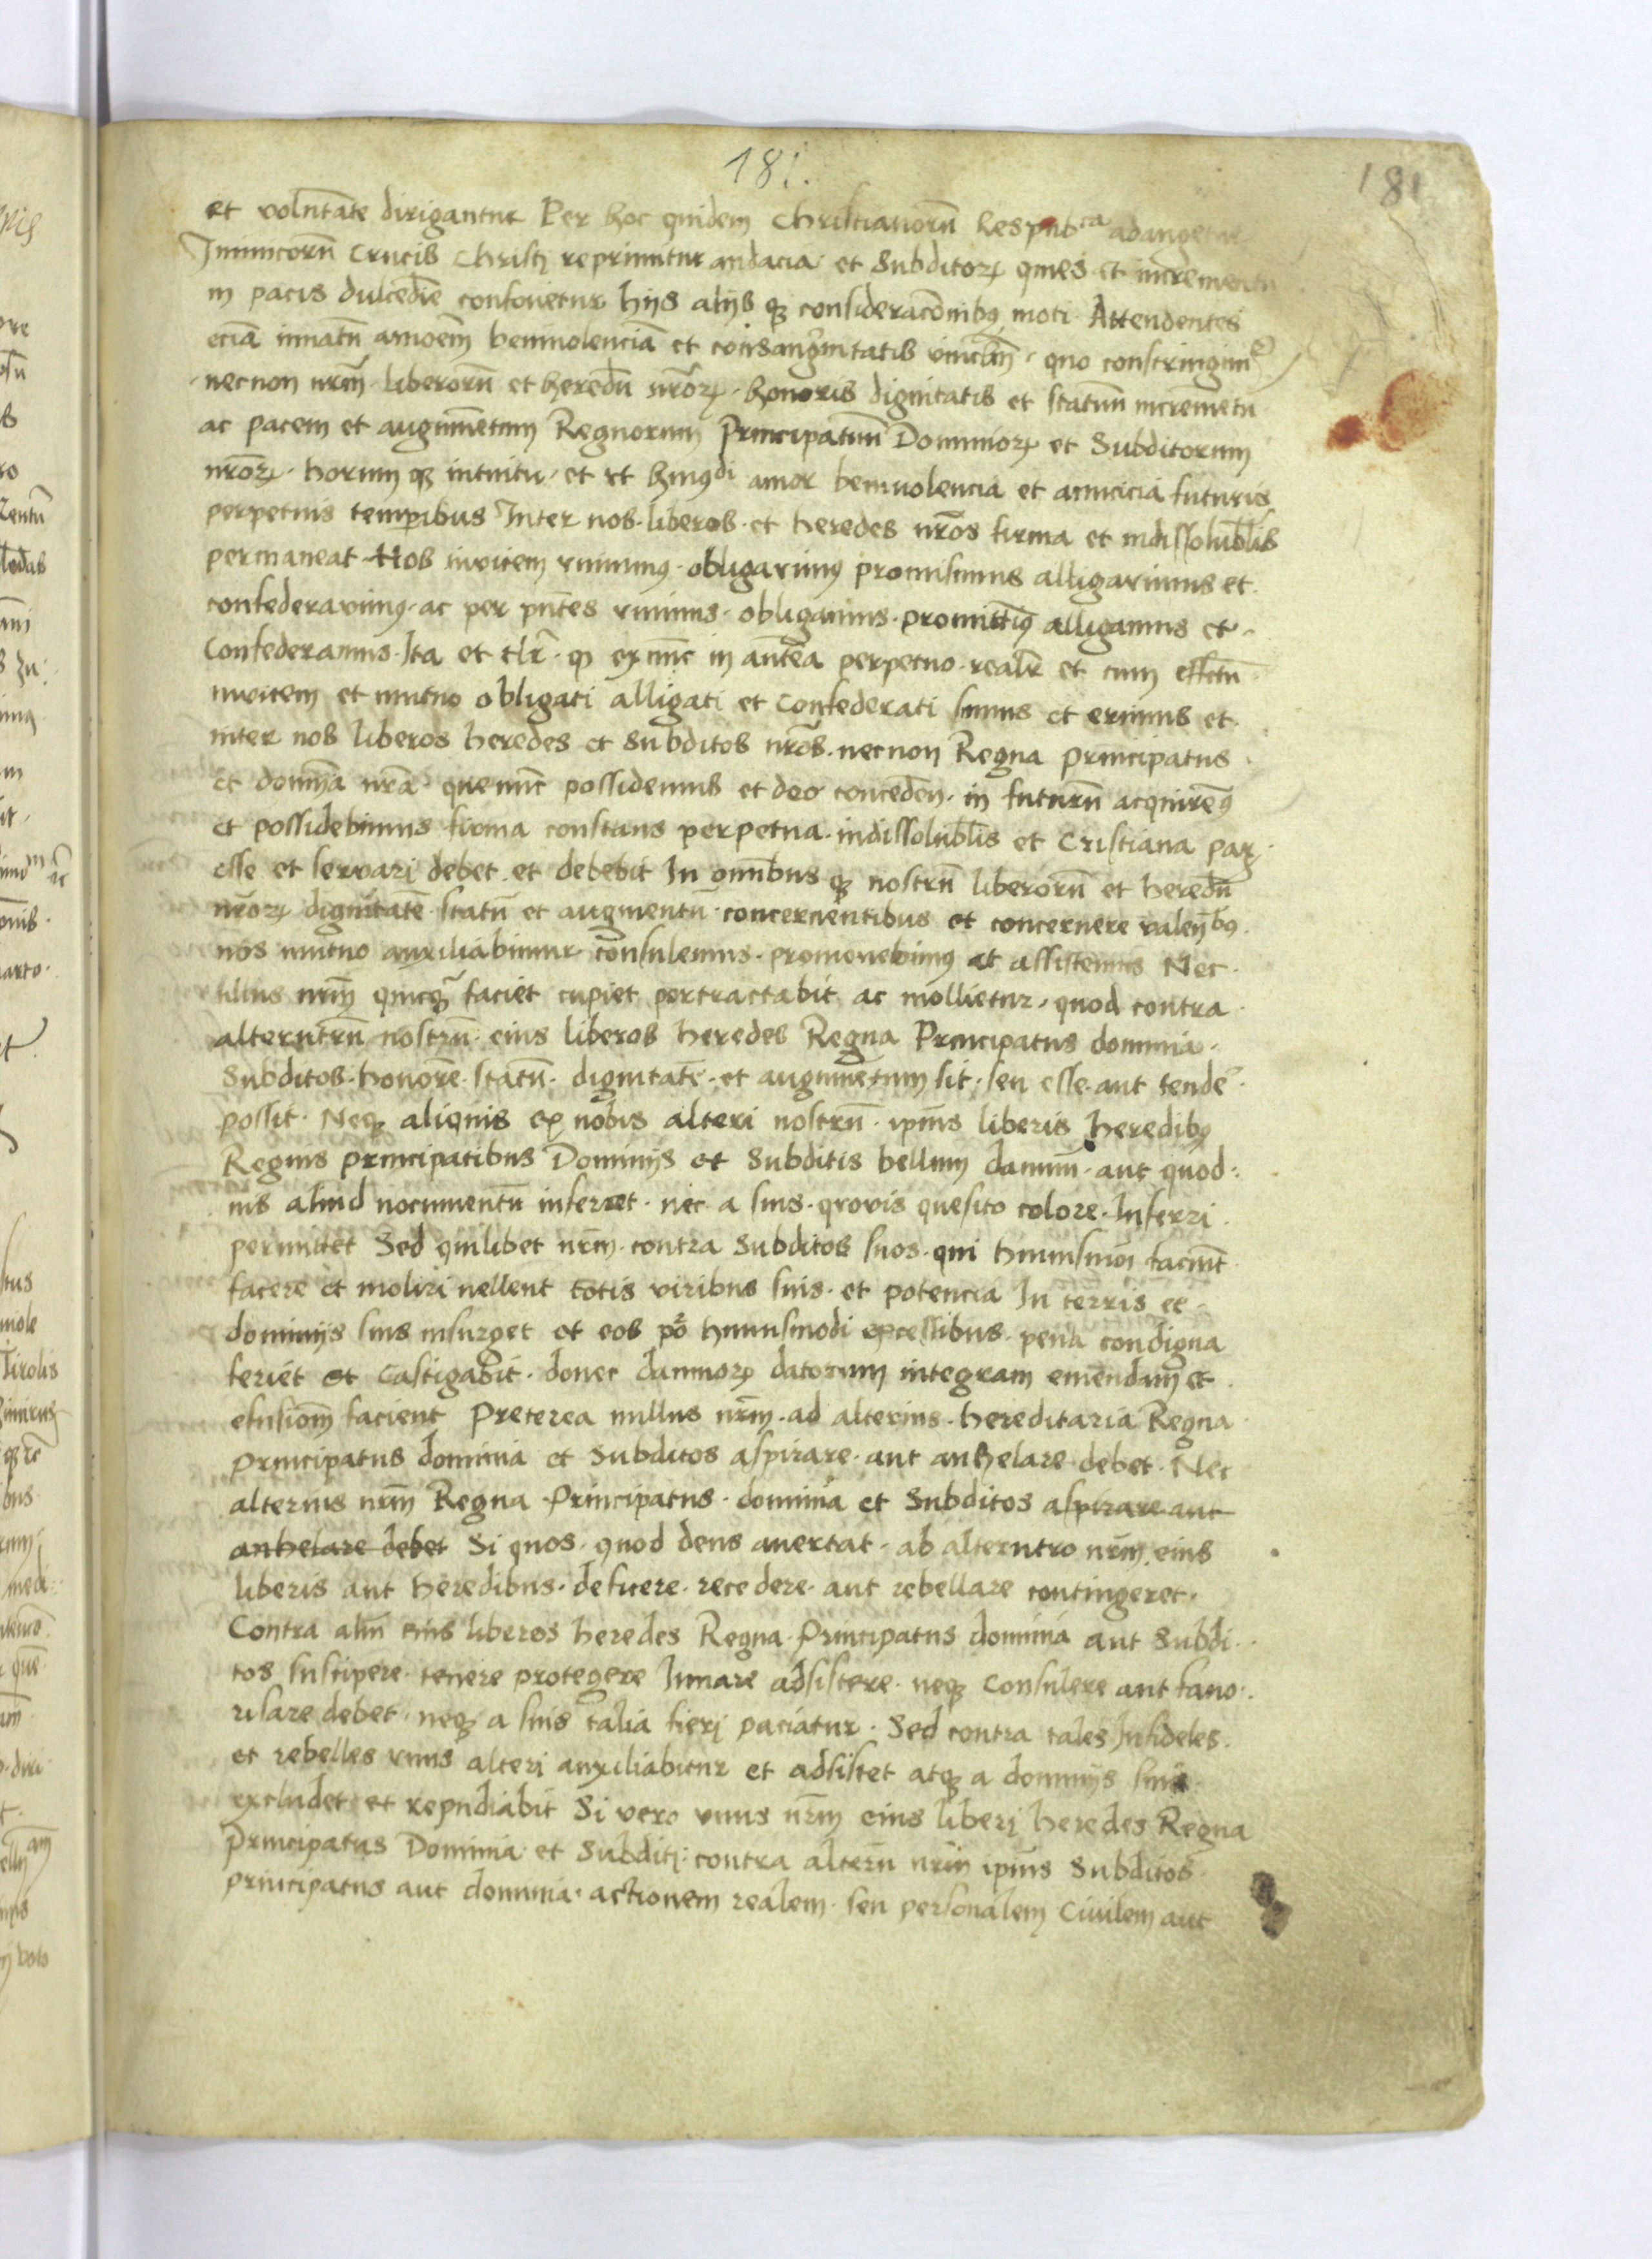 181.
181
et voluntate dirigantur Per hoc quidem Christianorū Respub^ca adaugetur
Inimicorū Crucis Christi reprimitur audacia et Subditorꝝ quies et incrementū
in pacis dulcedīe confovetur hijs alijs qꝫ consideracōnibꝰ moti Attendentes
eciā innatū amoēm benivolenciā et cōnsangwītatis vincl̄m · quo constringimꝰ
necnon nr̄m liberorū et heredū nr̄orꝝ · honoris dignitatis et statuū incremētū
ac pacem et augumētum Regnorum Principatuū Dominiorꝝ et Subditorum
nr̄orꝝ · horum qꝫ intuitu · et vt hmōi amor benivolencia et amicicia futuris
perpetuis temp̄ibus Inter nos · liberos · et heredes nr̄os firma et indissolubl̄is
permaneat Nos invicem vnimꝰ · obligavimꝰ promisimus alligavimus et
confederavimꝰ · ac per pn̄tes vnimus · obligamus · promittimꝰ alligamus et
Confederamus · Ita et tlr̄ · qꝫ ex nūc in antea perpetuo · realr̄ et cum effectu
invicem et mutuo obligati alligati et Confederati sumus et erimus et
inter nos liberos heredes et Subditos nr̄os · necnon Regna Principatus
et dominia nr̄a · que nūc possidemus et deo conceden̄ · in futurū acquiremꝰ
et possidebimus firma constans perpetua · indissolubl̄is et Cristiana pax
esse et servari debet et debebit In omībus qꝫ nostrū liberorū et heredū
nr̄orꝝ dignitatē statū et augmentū concernentibus et concernere valentibꝰ
nos mutuo auxiliabimur consulemus · promovebimꝰ et assistemus Nec
ullus nr̄m quicqꝫ faciet cupiet pertractabit ac mollietur · quod contra
alterutrū nostrū eius liberos heredes Regna Principatus dominia ·
Subditos · honorē · statū · dignitatē · et augumētum sit · seu esse · aut tendē
possit · Neqꝫ aliquis ex nobis alteri nostrū · ip̄ius liberis heredibꝰ
Regnis principatibus Dominijs et Subditis bellum damnū · aut quod
vis aliud nocumentū inferret · nec a suis · qrovis quesito colore · Inferri
permittet Sed quilibet nr̄m · contra Subditos suos · qui huiusmōi faciūt
facere et moliri vellent totis viribus suis · et potencia In terris et
dominijs suis insurget et eos p̄o huiusmodi excessibus · pena condigna
feriet et Castigabit · donec damnorꝝ datorum integram emendam et
efusiom̄ facient Preterea nullus nr̄m · ad alterius · hereditaria Regna
Principatus dominia et Subditos aspirare · aut anhelare debet · Nec
alterius nr̄m Regna Principatus · dominia et Subditos aspirare aut
anhelare debet Si quos · quod deus avertat · ab alterutro nr̄m · eius
liberis aut heredibus · deficere · recedere · aut rebellare contingeret ·
Contra aliū eius liberos heredes Regna · Principatus dominia aut Subdi
tos suscipere · tenere protegere Iuvare adsistere · neqꝫ Consulere aut favo
risare debet · neqꝫ a suis talia fieri paciatur · Sed contra tales Infideles
et rebelles vnus alteri auxiliabitur et adsistet atqꝫ a dominijs suis
excludet et repudiabit Si vero vnus nr̄m eius liberi heredes Regna
Principatus Dominia et Subditi contra alterū nr̄m ip̄ius Subditos
principatus aut dominia · actionem realem · seu personalem Civilem aut